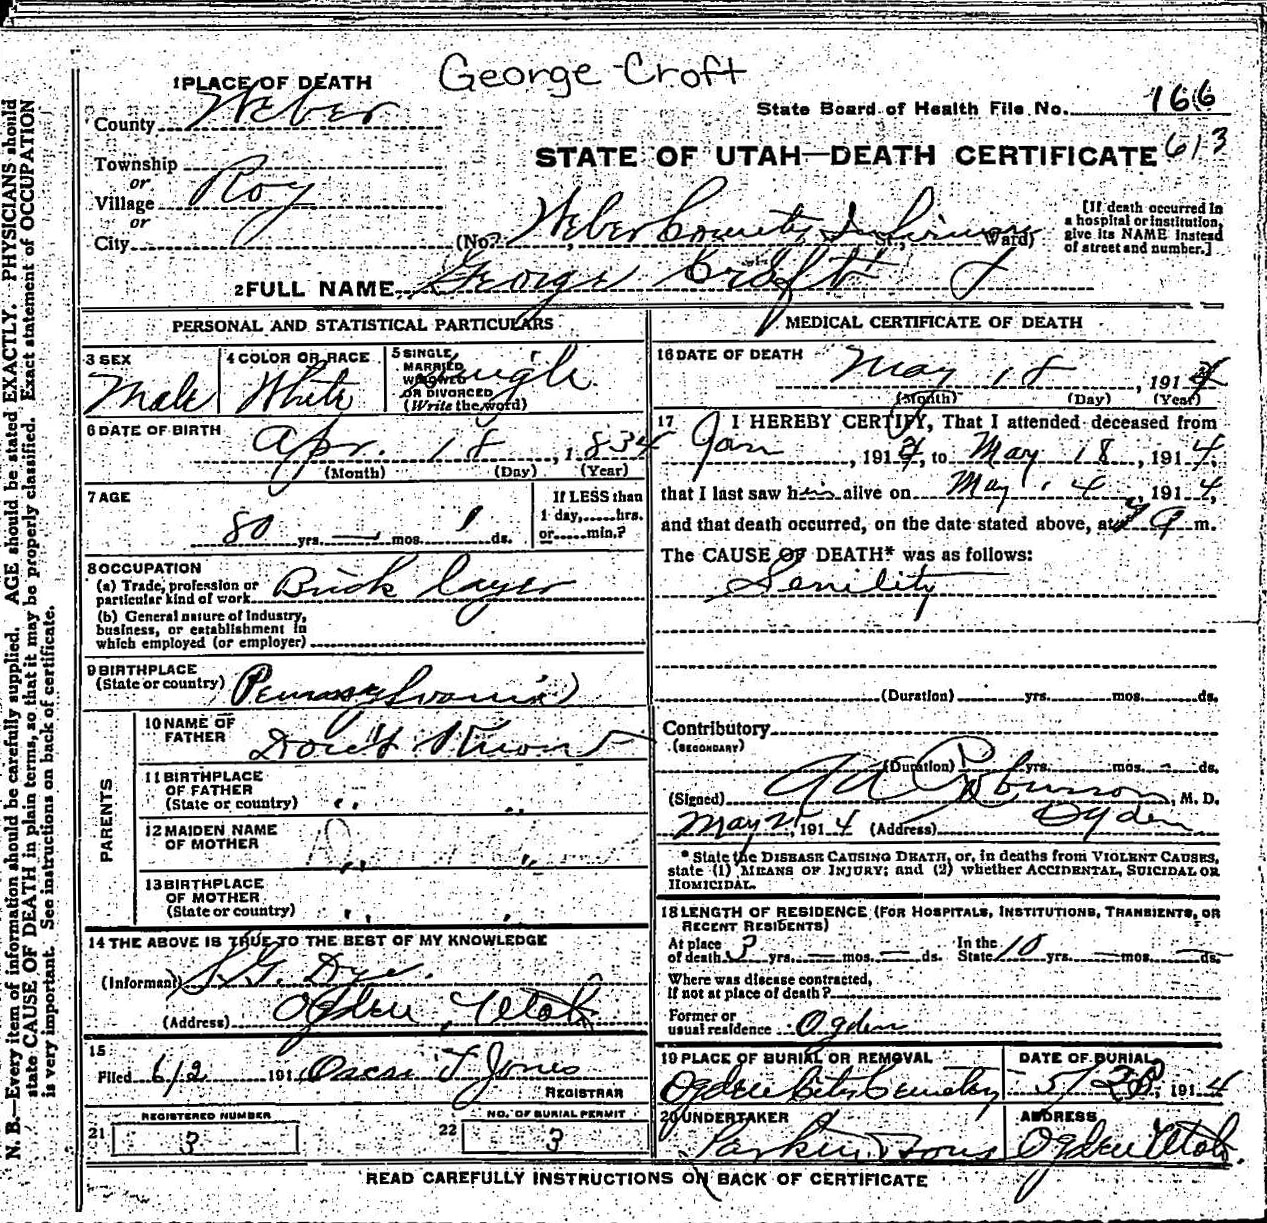 George Croft
1 PLACE OF DEATH
County Weber
State Board of Health File No. 166
613
STATE OF UTAH—DEATH CERTIFICATE
Township
or
Village Roy
or
City
(No. Weber County Infirmary St.; Ward)
[If death occurred in
a hospital or institution,
give its NAME instead
of street and number.]
2 FULL NAME George Croft
PERSONAL AND STATISTICAL PARTICULARS
3 SEX
Male
4 COLOR OR RACE
White
5 SINGLE
MARRIED
WIDOWED
OR DIVORCED
(Write the word)
Single
6 DATE OF BIRTH
Apr. 18, 1834
(Month) (Day) (Year)
7 AGE
80 yrs. — mos. ds.
If LESS than
1 day,......hrs.
or......min.?
8 OCCUPATION
(a) Trade, profession or
particular kind of work Brick Layer
(b) General nature of industry,
business, or establishment in
which employed (or employer)
9 BIRTHPLACE
(State or country) Pennsylvania
PARENTS
10 NAME OF
FATHER Don't Know
11 BIRTHPLACE
OF FATHER
(State or country) " "
12 MAIDEN NAME
OF MOTHER " "
13 BIRTHPLACE
OF MOTHER
(State or country) " "
14 THE ABOVE IS TRUE TO THE BEST OF MY KNOWLEDGE
(Informant) S.G. Dye.
(Address) Ogden, Utah
15
Filed 6/2 191 Oscar T Jones
REGISTRAR
REGISTERED NUMBER
21 3
NO. OF BURIAL PERMIT
22 3
MEDICAL CERTIFICATE OF DEATH
16 DATE OF DEATH
May 18, 1914
(Month) (Day) (Year)
17 I HEREBY CERTIFY, That I attended deceased from
Jan, 191 , to May 18, 1914,
that I last saw him alive on May 14, 1914,
and that death occurred, on the date stated above, at m.
The CAUSE OF DEATH* was as follows:
Senility
(Duration) yrs. mos. ds.
Contributory
(SECONDARY)
(Duration) yrs. mos. ds.
(Signed) Robinson, M. D.
May 21, 1914 (Address) Ogden
* State the DISEASE CAUSING DEATH, or, in deaths from VIOLENT CAUSES,
state (1) MEANS OF INJURY; and (2) whether ACCIDENTAL, SUICIDAL OR
HOMICIDAL.
18 LENGTH OF RESIDENCE (FOR HOSPITALS, INSTITUTIONS, TRANSIENTS, OR
RECENT RESIDENTS)
At place
of death 3 yrs. — mos. — ds.
In the
State 10 yrs. — mos. — ds.
Where was disease contracted,
if not at place of death?
Former or
usual residence Ogden
19 PLACE OF BURIAL OR REMOVAL
Ogden City Cemetery
DATE OF BURIAL
5/20, 1914
20 UNDERTAKER
Larkin Sons
ADDRESS
Ogden Utah.
READ CAREFULLY INSTRUCTIONS ON BACK OF CERTIFICATE
N. B.—Every item of information should be carefully supplied. AGE should be stated EXACTLY. PHYSICIANS should
state CAUSE OF DEATH in plain terms, so that it may be properly classified. Exact statement of OCCUPATION
is very important. See instructions on back of certificate.